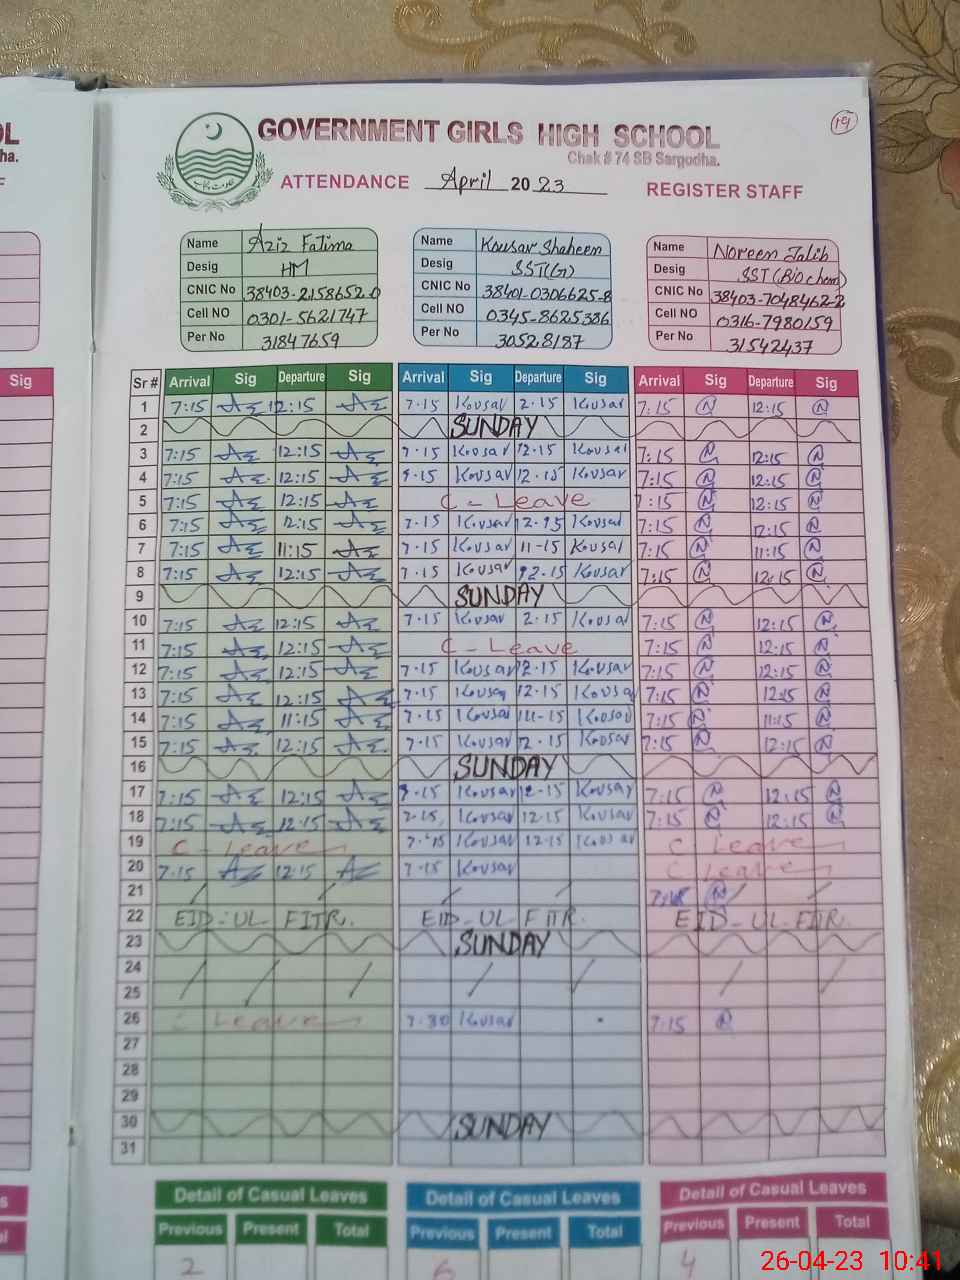 OL
ha.
F
Sig
s
al
19
GOVERNMENT GIRLS HIGH SCHOOL
Chak # 74 SB Sargodha.
ATTENDANCE April 2023 REGISTER STAFF
Name Aziz Fatima Name Kousar Shaheen Name Noreen Jalib
Desig HM Desig SST(G) Desig SST (Bio chem)
CNIC No 38403-2158652-0 CNIC No 38401-0306625-8 CNIC No 38403-7048462-2
Cell NO 0301-5621747 Cell NO 0345-8625386 Cell NO 0316-7980159
Per No 31847659 Per No 30528187 Per No 31542437
Sr # Arrival Sig Departure Sig Arrival Sig Departure Sig Arrival Sig Departure Sig
1 7:15 12:15 7.15 Kousar 2.15 Kousar 7:15 N 12:15 N
2 SUNDAY
3 7:15 12:15 7.15 Kousar 12.15 Kousar 7:15 N 12:15 N
4 7:15 12:15 7.15 Kousar 12.15 Kousar 7:15 N 12:15 N
5 7:15 12:15 C - Leave 7:15 N 12:15 N
6 7:15 12:15 7.15 Kousar 12.15 Kousar 7:15 N 12:15 N
7 7:15 11:15 7.15 Kousar 11-15 Kousar 7:15 N 11:15 N
8 7:15 12:15 7.15 Kousar 12.15 Kousar 7:15 N 12:15 N
9 SUNDAY
10 7:15 12:15 7.15 Kousar 2.15 Kousar 7:15 N 12:15 N
11 7:15 12:15 C - Leave 7:15 N 12:15 N
12 7:15 12:15 7.15 Kousar 12.15 Kousar 7:15 N 12:15 N
13 7:15 12:15 7.15 Kousar 12.15 Kousar 7:15 N 12:15 N
14 7:15 11:15 7.15 Kousar 11-15 Kousar 7:15 N 11:15 N
15 7:15 12:15 7.15 Kousar 12.15 Kousar 7:15 N 12:15 N
16 SUNDAY
17 7:15 12:15 7.15 Kousar 12.15 Kousar 7:15 N 12:15 N
18 7:15 12:15 7.15 Kousar 12.15 Kousar 7:15 N 12:15 N
19 C - Leave 7.15 Kousar 12.15 Kousar C Leave
20 7:15 12:15 7.15 Kousar C Leave
21 N
22 EID-UL-FITR. EID-UL-FITR. EID-UL-FITR.
23 SUNDAY
24
25
26 C Leave 7.30 Kousar 7:15 N
27
28
29
30 SUNDAY
31
Detail of Casual Leaves Detail of Casual Leaves Detail of Casual Leaves
Previous Present Total Previous Present Total Previous Present Total
2 6 4
26-04-23 10:41